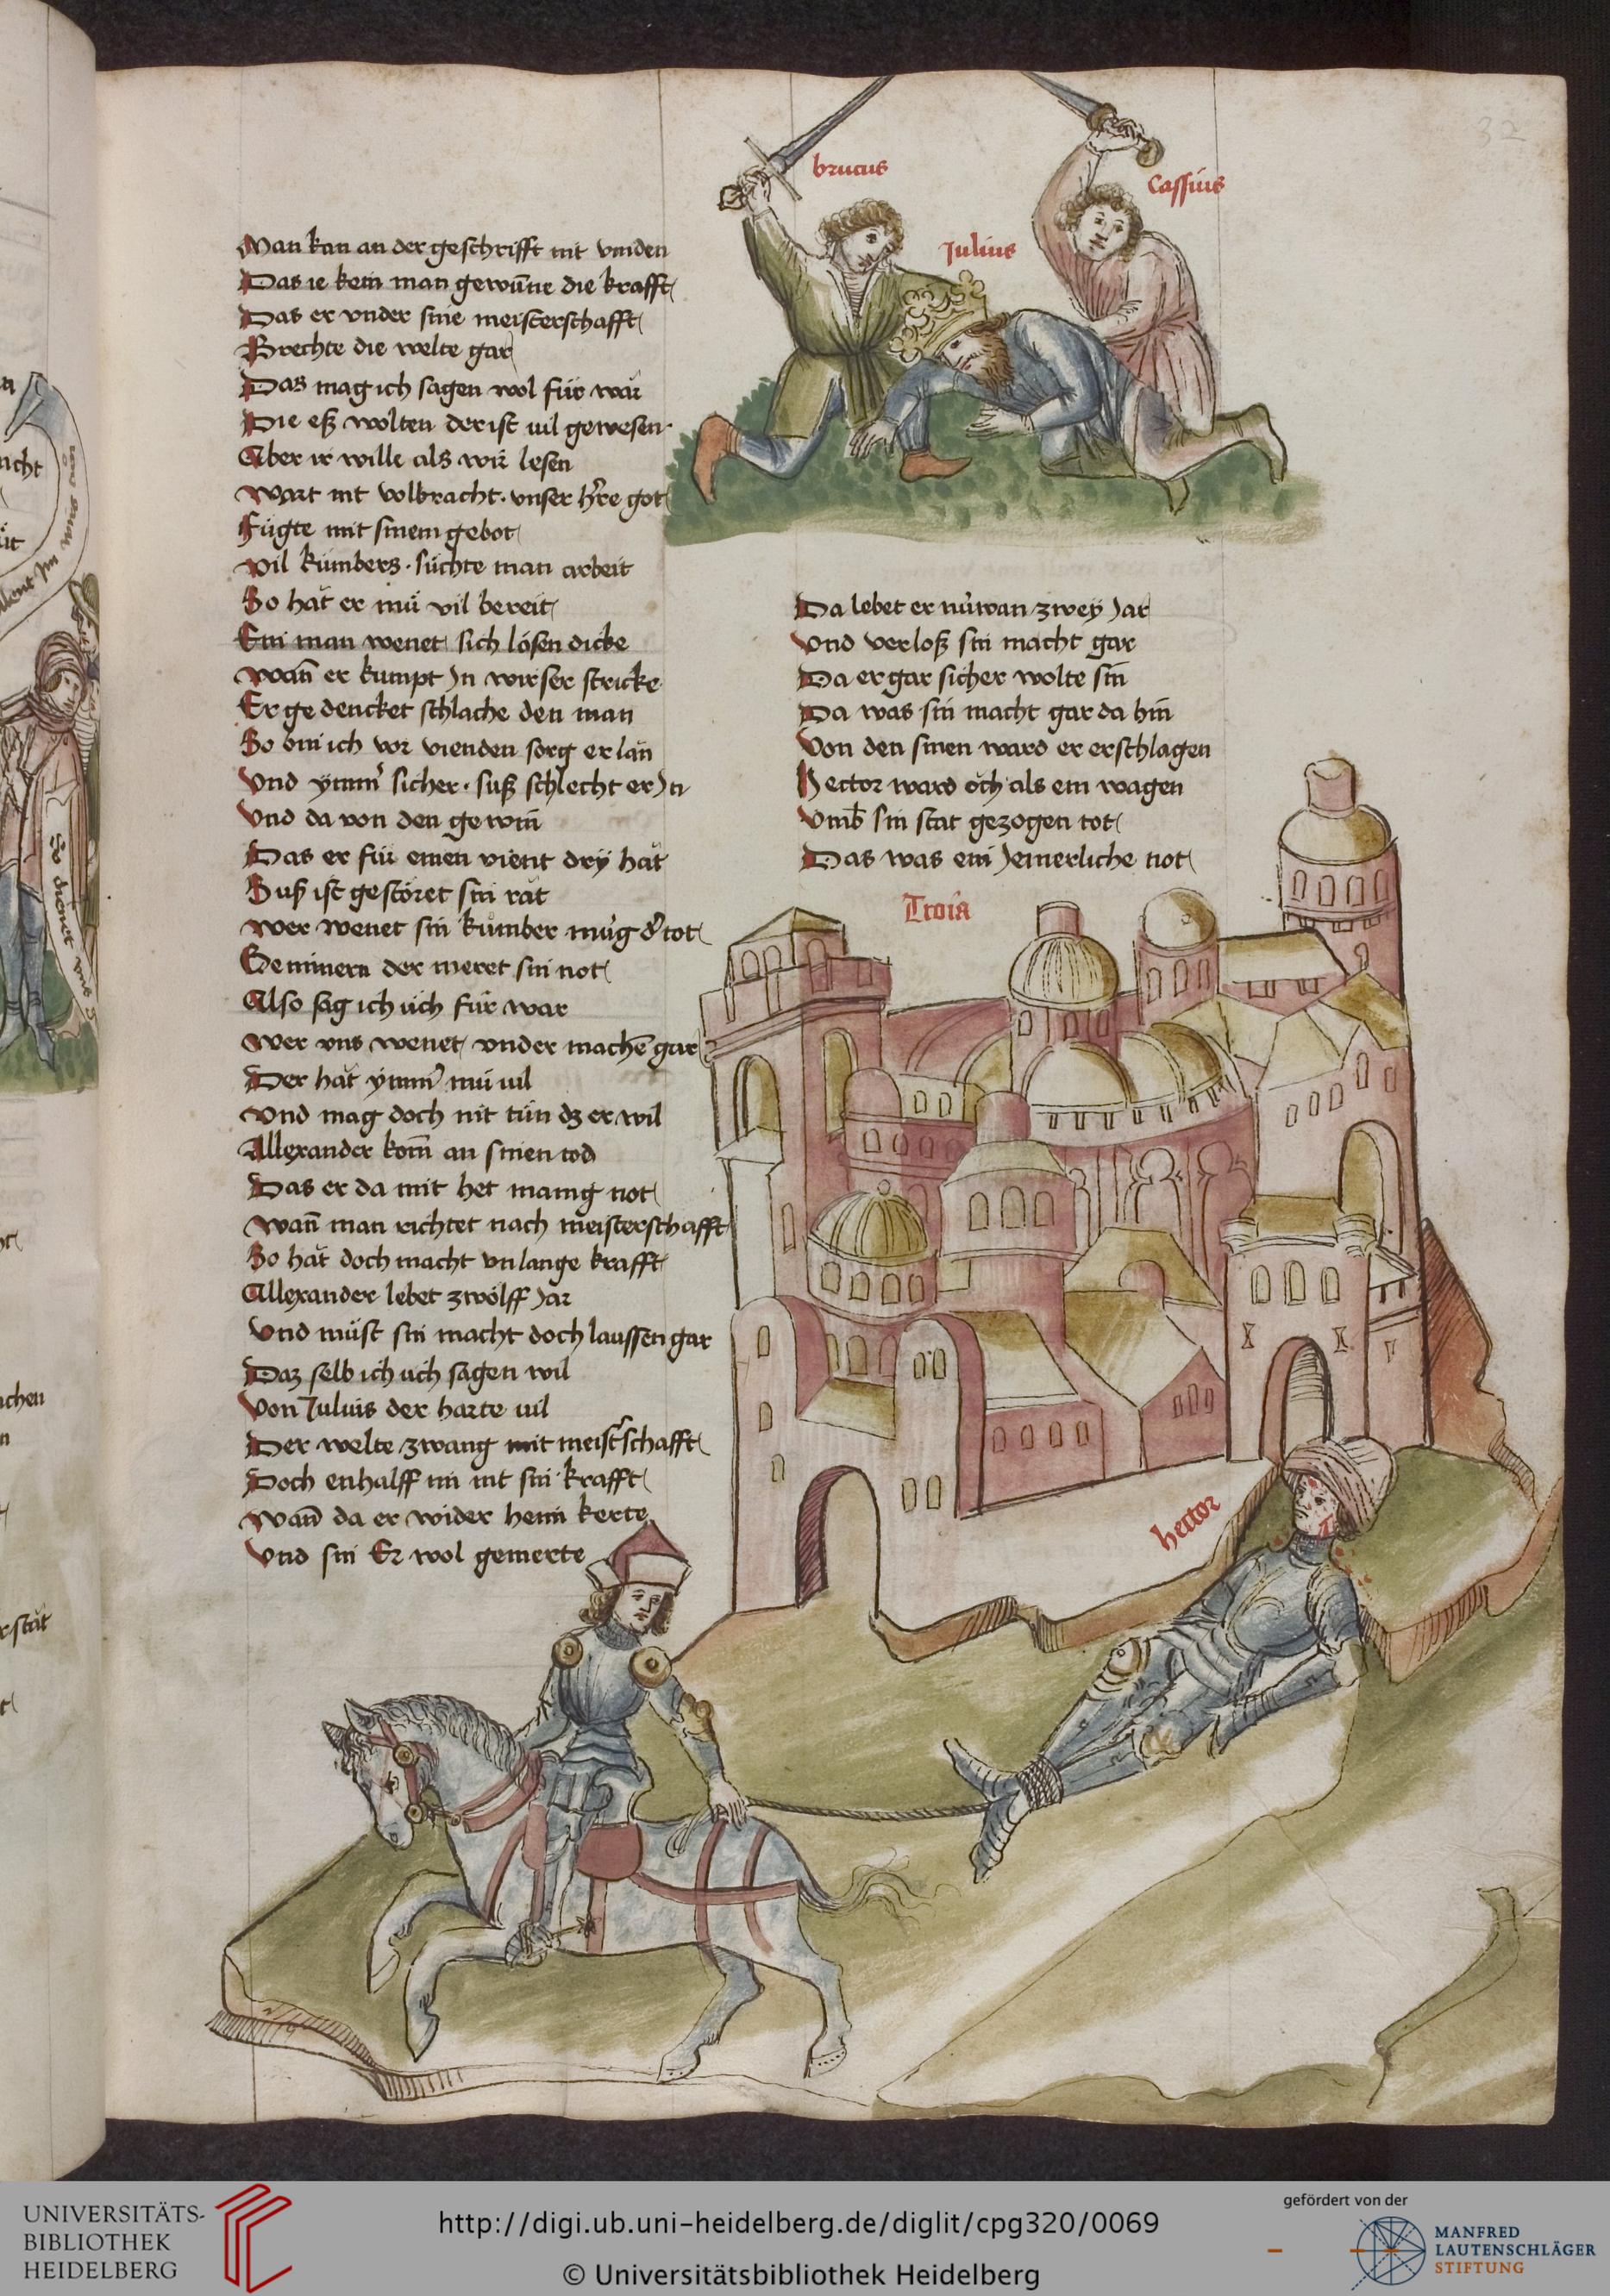 brutus
Cassius
Julius
32
Man kan an der geschrifft nit vinden
Das ie kein man gewūne die krafft
Das er vnder sine meisterschafft
Brechte die welte gar
Das mag ich sagen wol für war
Die eß wolten der ist uil gewesen
Aber ir wille als wir lesen
Wart nit volbracht · vnser hre got
Fügte mit sinem gebot
Vil kümbers · süchte man arbeit
So hăt er mü vil bereit
Ein man wenet sich lösen dicke
Wan̄ er kumpt Jn wirser stricke
Er gedencket schlache den man
So bin ich vor vienden sorg erlan
Vnd ymm̄ sicher · suß schlecht er Jn
Vnd da von den gewin̄
Das er für einen vient dry hăt
Suß ist gestöret sin răt
Wer wenet sin kumber müg d tot
Geminern der meret sin not
Also sag ich üch für war
Wer vns wenet vnder machē gar
Der hăt ymm̄ mü uil
Vnd mag doch nit tün dz er wil
Allexander kom̄ an sinen tod
Das er da mit het manig not
Wan̄ man richtet nach meisterschafft
So hăt doch macht vnlange krafft
Allexander lebet zwölff Jar
Vnd müst sin macht doch laussen gar
Daz selb ich üch sagen wil
Von Juluis der harte uil
Der welte zwang mit meistschafft
Doch enhalff im nit sin krafft
Wan̄ da er wider heim kerte
Vnd sin Er wol gemerte
Da lebet er nüwan zwey Jar
Vnd verloß sin macht gar
Da er gar sicher wolte sin̄
Da was sin macht gar da hin̄
Von den sinen ward er erschlagen
Hector ward och als ein wagen
Vmb sin stat gezogen tot
Das was ein Jemerliche not
Troia
hector
UNIVERSITÄTS-
BIBLIOTHEK
HEIDELBERG
http://digi.ub.uni-heidelberg.de/diglit/cpg320/0069
© Universitätsbibliothek Heidelberg
gefördert von der
MANFRED
LAUTENSCHLÄGER
STIFTUNG